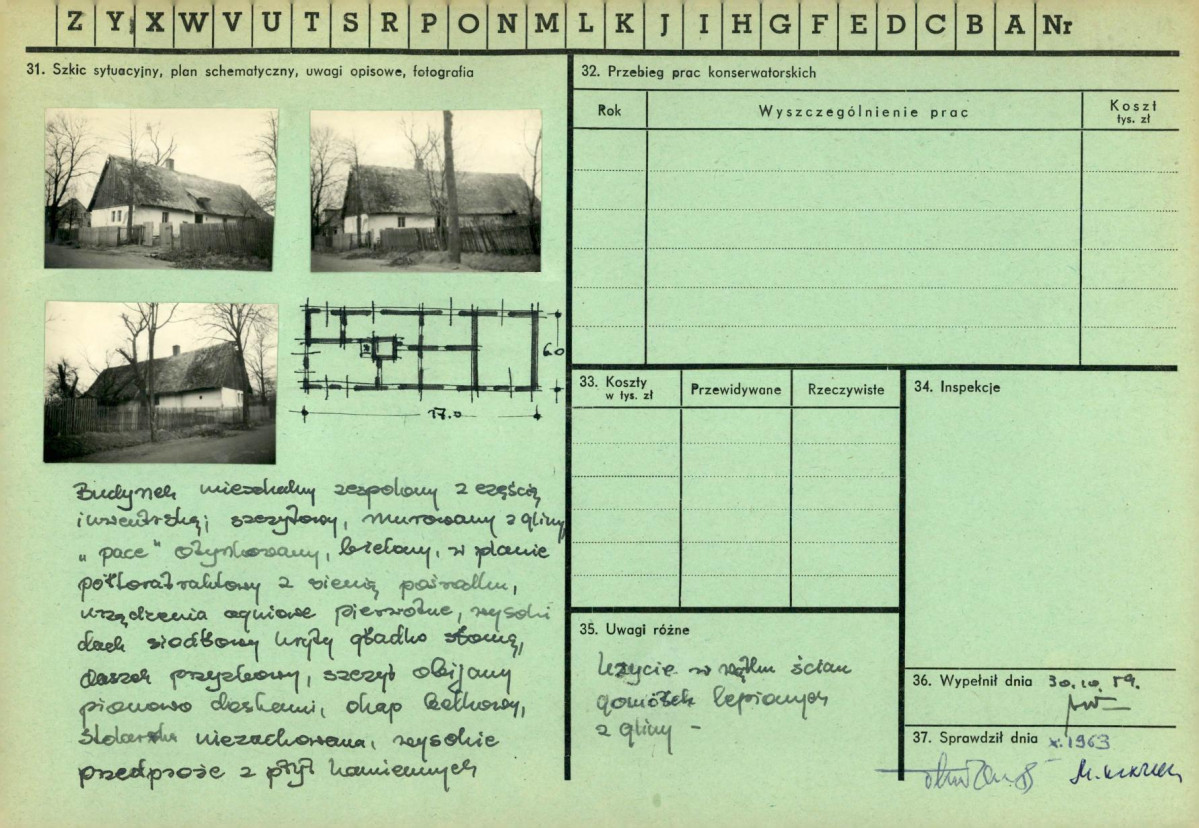 Z Y X W V U T S R P O N M L K J I H G F E D C B A Nr
31. Szkic sytuacyjny, plan schematyczny, uwagi opisowe, fotografia
6.0
17.0
Budynek mieszkalny zespolony z częścią
inwentarską, szczytowy, murowany z gliny
„pace" otynkowany, bielony, w planie
półtoratraktowy z sienią pośrodku,
urządzenia ogniowe pierwotne, wysoki
dach siodłowy kryty gładko słomą,
daszek przyzbowy, szczyt obijany
pionowo deskami, okap belkowy,
stolarka niezachowana, wysokie
przedproże z płyt kamiennych
32. Przebieg prac konserwatorskich
Rok Wyszczególnienie prac Koszt
tys. zł
33. Koszty Przewidywane Rzeczywiste
w tys. zł
34. Inspekcje
35. Uwagi różne
Użycie w wątku ścian
gomółek lepionych
z gliny –
36. Wypełnił dnia 30.10.59.
37. Sprawdził dnia x.1963